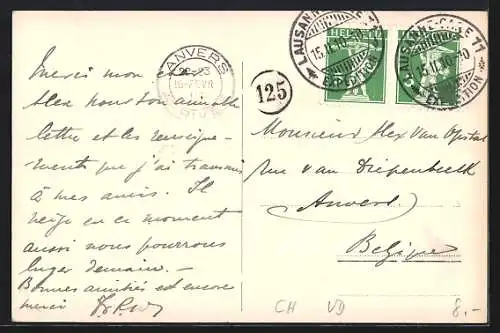 ANVERS
LAUSANNE-GARE 11
15.II.10.-
EXPEDITION
HELVETIA
LAUSANNE-GARE 11
15.II.10.-
EXPEDITION
125
Merci mon cher
Alex pour ton aimable
lettre et les renseigne-
ments que j'ai transmis
à mes amis. Il
neige en ce moment
aussi nous pourrons
luger demain. -
Bonnes amitiés et encore
merci
Monsieur Alex Van Opstal
rue van Diepenbeek
Anvers.
Belgique
CH VD
8.-